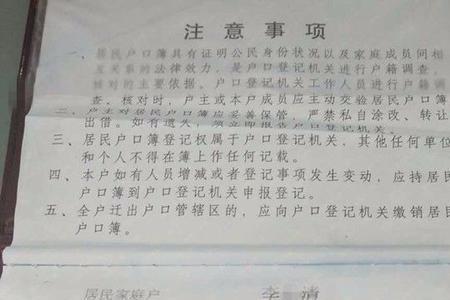 注意事项
、居民户口簿具有证明公民身份状况以及家庭成员间相
互关系的法律效力，是户口登记机关进行户籍调查，
核对的主要依据。户口登记机关工作人员进行户籍
调查、核对时，户主或本户成员应主动交验居民户口簿
二、户主对居民户口簿应妥善保管，严禁私自涂改、转让
出借。如有遗失，须立即报告户口登记机关。
三、居民户口簿登记权属于户口登记机关，其他任何单位
和个人不得在簿上作任何记载。
四、本户如有人员增减或者登记事项发生变动，应持居民
户口簿到户口登记机关申报登记。
五、全户迁出户口管辖区的，应向户口登记机关缴销居民
户口簿。
居民家庭户 李 清